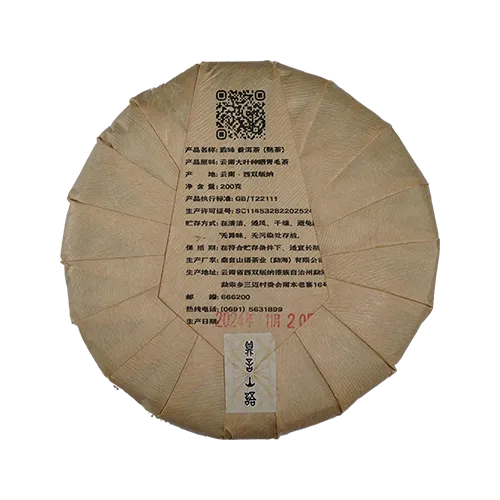 产品名称: 韵味 普洱茶 (熟茶)
产品原料: 云南大叶种晒青毛茶
产 地: 云南·西双版纳
净 含 量: 200克
产品执行标准: GB/T22111
生产许可证号: SC11453282202524
贮存方式: 在清洁、通风、干燥、避免
无异味、无污染处存放。
保 质 期: 在符合贮存条件下、适宜长期
生产厂家: 山语茶业 (勐海) 有限公司
生产地址: 云南省西双版纳傣族自治州勐海
勐崇乡三迈村委会南本老寨16号
邮 编: 666200
热线电话: (0691) 5631899
生产日期: 2024年 11月 205